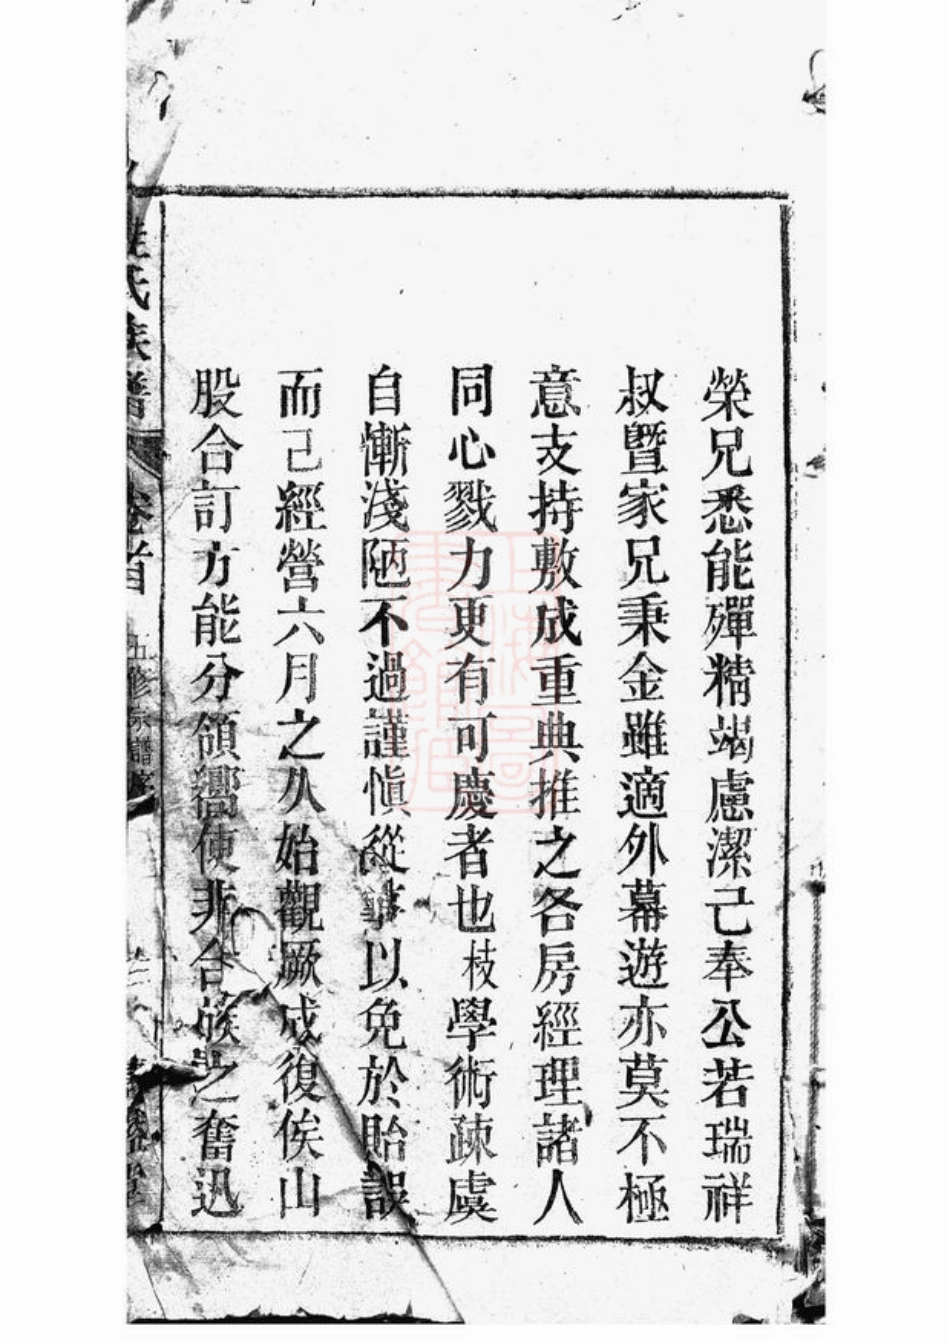 榮兄悉能殫精竭慮潔己奉公若瑞祥
叔暨家兄秉金雖適外幕遊亦莫不極
意支持敷成重典推之各房經理諸人
同心戮力更有可慶者也枝學術疎虞
自慚淺陋不過謹慎從事以免於貽誤
而己經營六月之久始觀厥成復俟山
股合訂方能分領嚮使非合族之奮迅
氏族譜
卷首
五修宗譜序